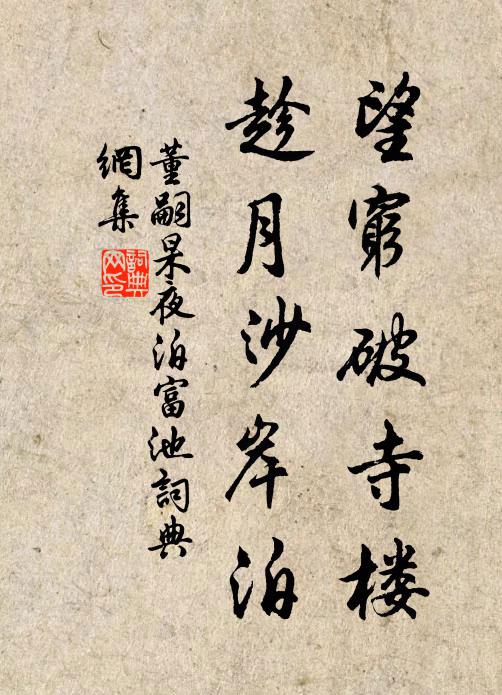 望窮破寺楼
趁月沙岸泊
董嗣杲夜泊富池詞典
網集
詞典
网印